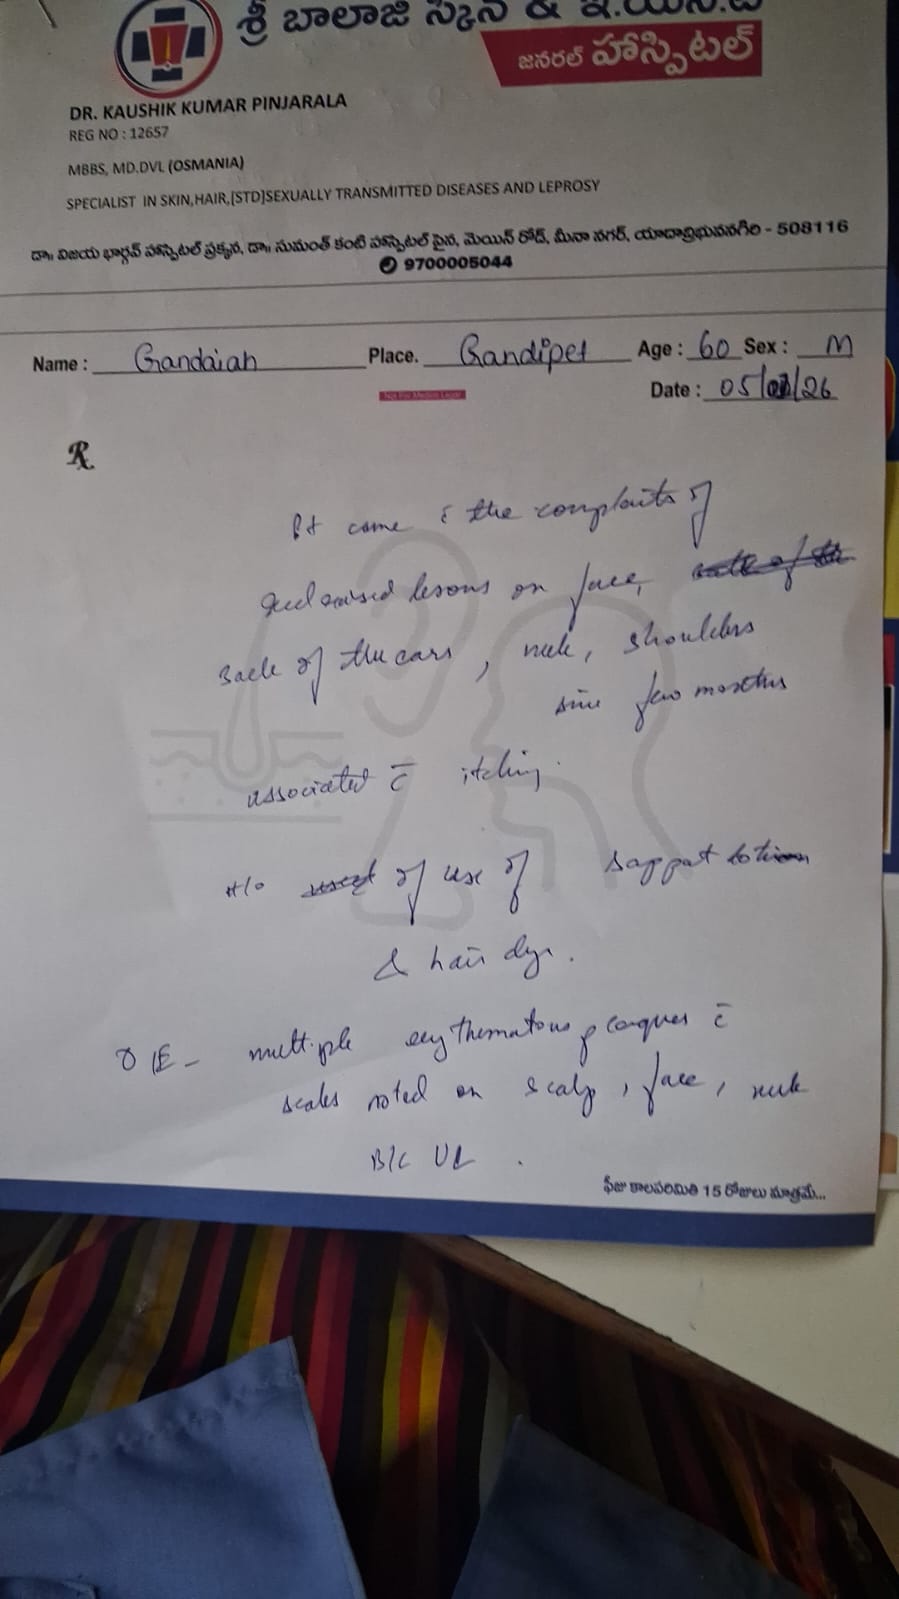 శ్రీ బాలాజీ స్కిన్ & ఇ.ఎన్.టి
జనరల్ హాస్పిటల్
DR. KAUSHIK KUMAR PINJARALA
REG NO : 12657
MBBS, MD.DVL (OSMANIA)
SPECIALIST IN SKIN,HAIR,[STD]SEXUALLY TRANSMITTED DISEASES AND LEPROSY
డా॥ విజయ భార్గవ్ హాస్పిటల్ ప్రక్కన, డా॥ సుమంత్ కంటి హాస్పిటల్ పైన, మెయిన్ రోడ్, మీనా నగర్, యాదాద్రిభువనగిరి - 508116
9700005044
Name : Gandaiah Place. Gandipet Age : 60 Sex : M
Not For Medico Legal
Date : 05/ /26
℞
Pt came c̄ the complaints of
red raised lesions on face,
Back of the ears, neck, shoulders
since few months
associated c̄ itching.
H/o of use of lotion
& hair dye.
O/E - multiple erythematous plaques c̄
scales noted on scalp, face, neck
B/L UL.
ఫీజు కాలపరిమితి 15 రోజులు మాత్రమే...